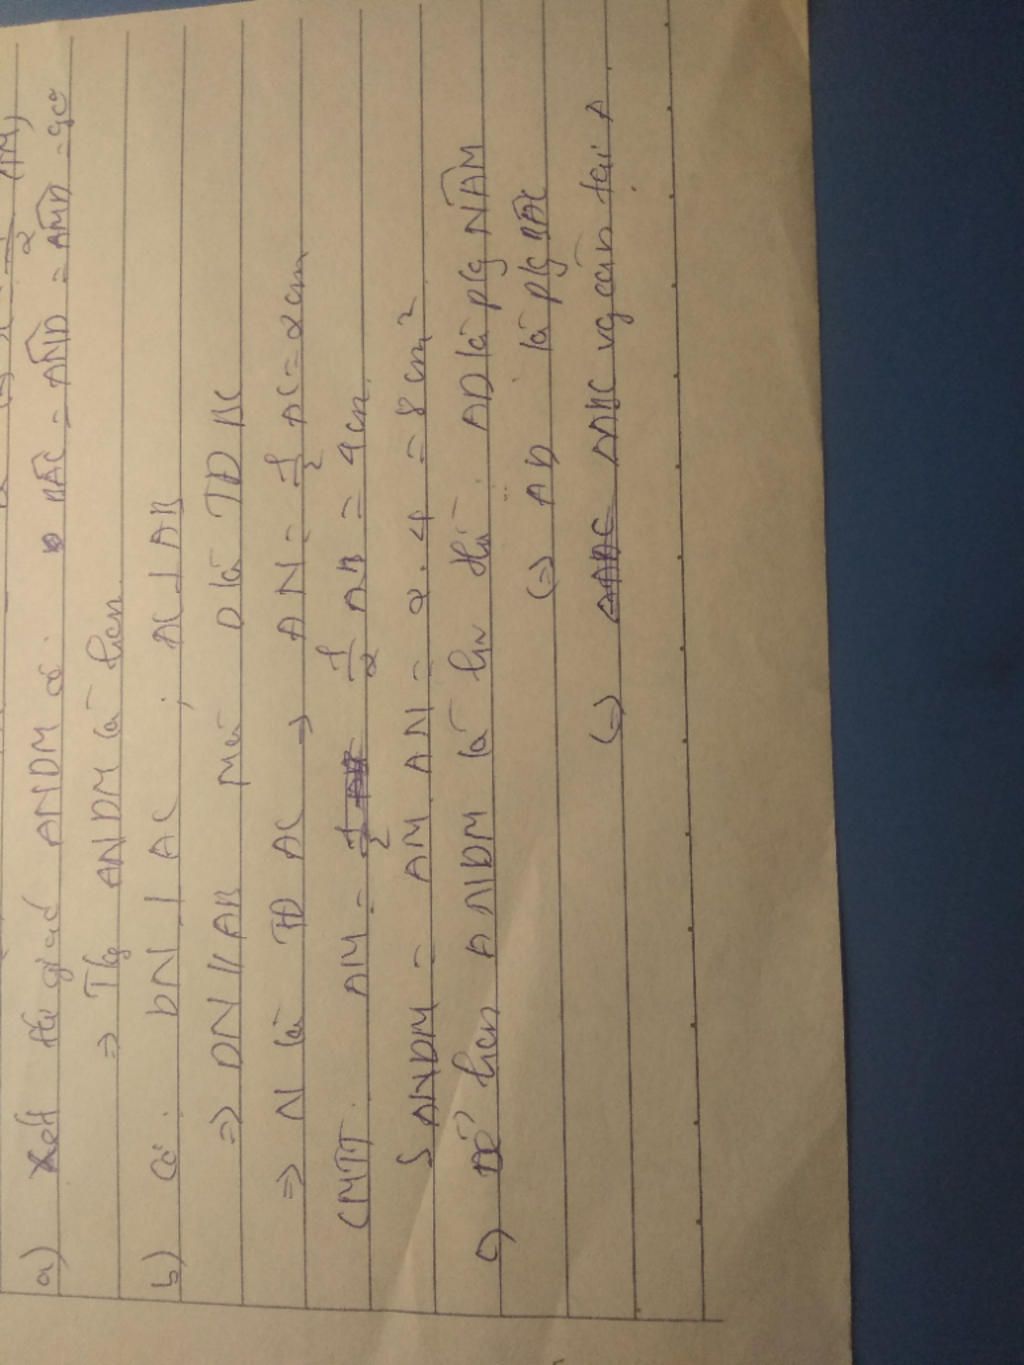 a) Xét tứ giác ANDM có: BAC = AND = AMD = 90
=> Tứg ANDM là hcn
b) Có: DN ⊥ AC ; AC ⊥ AB
=> DN // AB Mà D là TĐ BC
=> N là TĐ AC => AN = 1/2 AC = 2cm
CMTT. AM = 1/2 AB = 4cm
S ANDM = AM.AN = 2.4 = 8cm²
c) Để hcn ANDM là hv thì AD là p/g NAM
(=) AD là p/g BAC
(=) ABC vg cân tại A